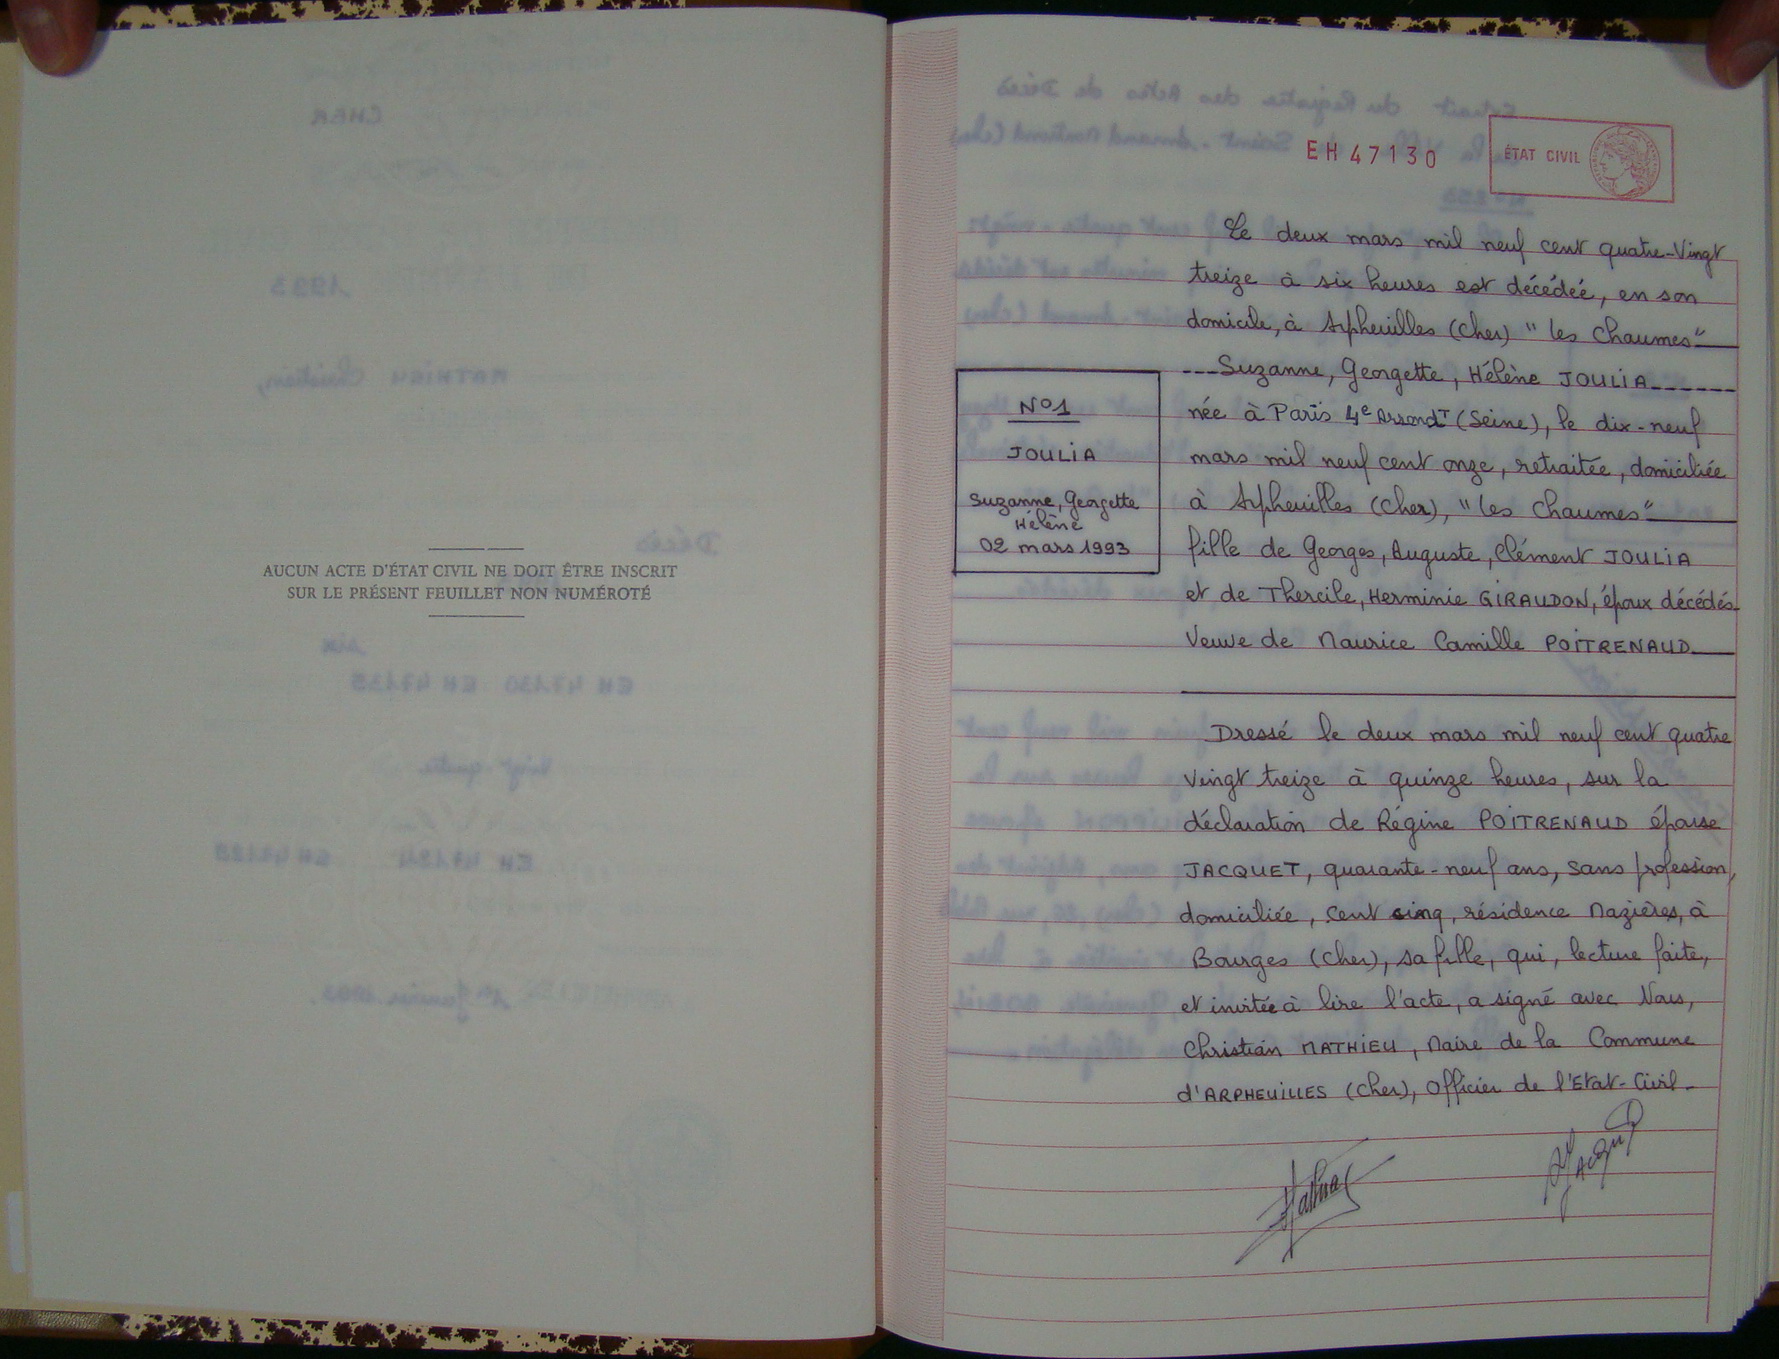 AUCUN ACTE D'ÉTAT CIVIL NE DOIT ÊTRE INSCRIT
SUR LE PRÉSENT FEUILLET NON NUMÉROTÉ
EH 47130
ÉTAT CIVIL
Le deux mars mil neuf cent quatre-Vingt
treize à six heures est décédée, en son
domicile, à Arpheuilles (Cher) "Les Chaumes"
---Suzanne, Georgette, Hélène JOULIA------
née à Paris 4e Arrondt (Seine), le dix-neuf
mars mil neuf cent onze, retraitée, domiciliée
à Arpheuilles (Cher), "Les Chaumes"
fille de Georges, Auguste, Clément JOULIA
et de Thercile, Herminie GIRAUDON, époux décédés
Veuve de Maurice Camille POITRENAUD
N°1
JOULIA
Suzanne, Georgette
Hélène
02 mars 1993
Dressé le deux mars mil neuf cent quatre
Vingt treize à quinze heures, sur la
déclaration de Régine POITRENAUD épouse
JACQUET, quarante-neuf ans, sans profession,
domiciliée, cent cinq, résidence Mazières, à
Bourges (Cher), sa fille, qui, lecture faite,
et invitée à lire l'acte, a signé avec Nous,
Christian MATHIEU, Maire de la Commune
d'ARPHEUILLES (Cher), Officier de l'Etat-Civil-